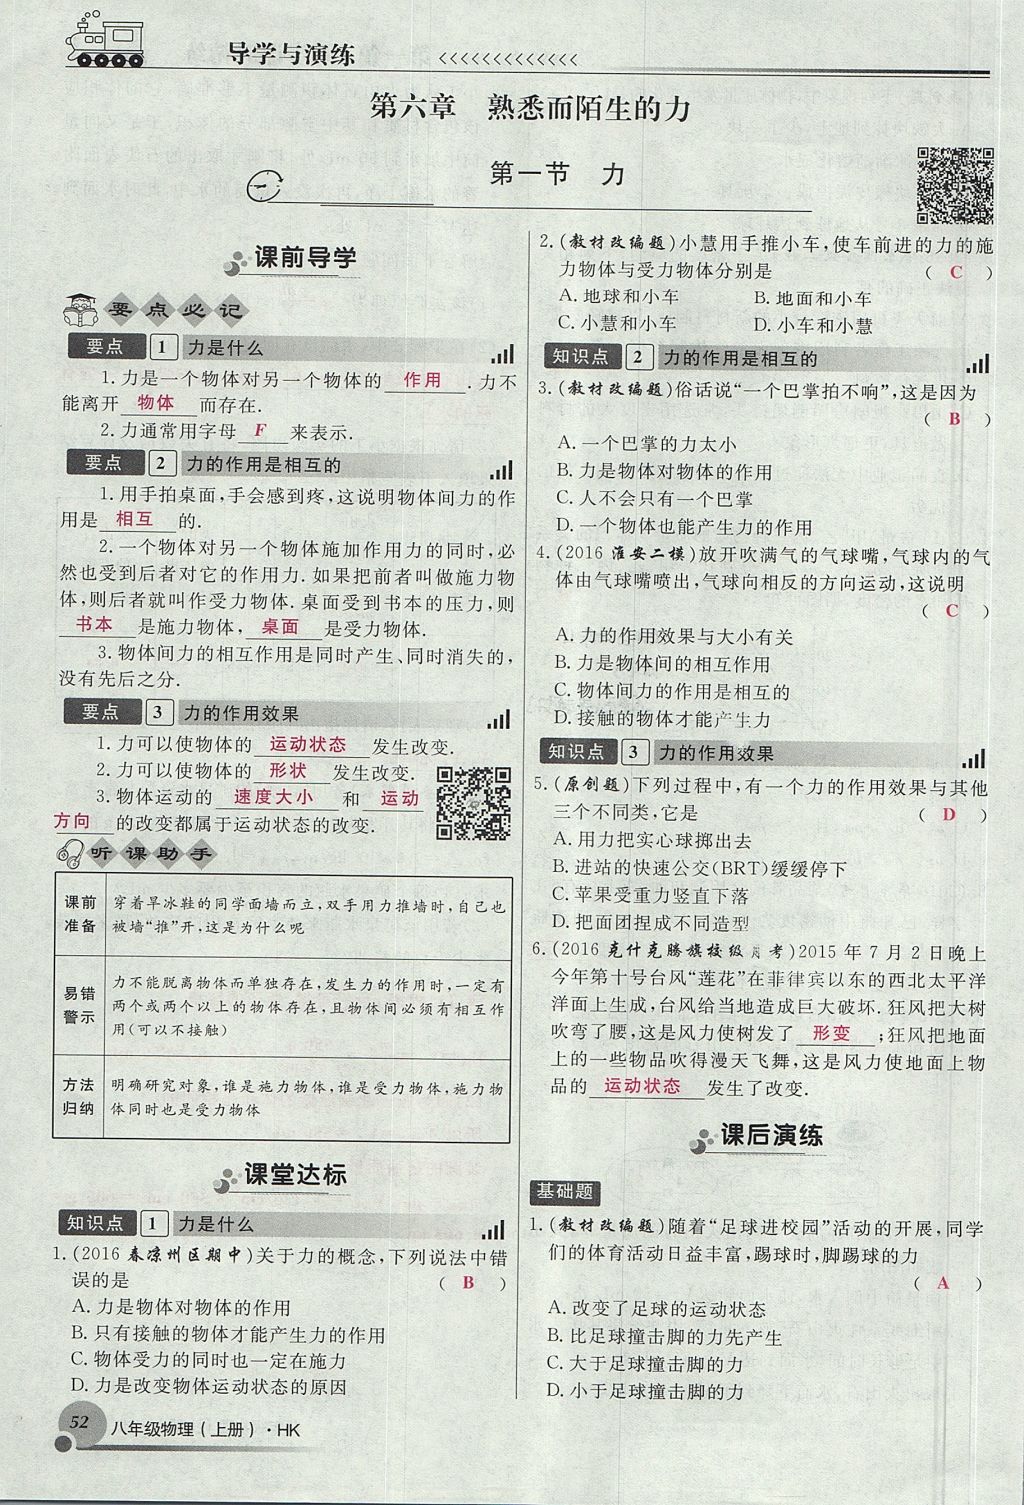 导学与演练
第六章 熟悉而陌生的力
第一节 力
课前导学
要点必记
要点 1 力是什么
1. 力是一个物体对另一个物体的 作用 . 力不
能离开 物体 而存在.
2. 力通常用字母 F 来表示.
要点 2 力的作用是相互的
1. 用手拍桌面,手会感到疼,这说明物体间力的作
用是 相互 的.
2. 一个物体对另一个物体施加作用力的同时,必
然也受到后者对它的作用力. 如果把前者叫做施力物
体,则后者就叫作受力物体. 桌面受到书本的压力,则
书本 是施力物体, 桌面 是受力物体.
3. 物体间力的相互作用是同时产生、同时消失的,
没有先后之分.
要点 3 力的作用效果
1. 力可以使物体的 运动状态 发生改变.
2. 力可以使物体的 形状 发生改变.
3. 物体运动的 速度大小 和 运动
方向 的改变都属于运动状态的改变.
听课助手
课前
准备
穿着旱冰鞋的同学面墙而立,双手用力推墙时,自己也
被墙“推”开,这是为什么呢
易错
警示
力不能脱离物体而单独存在,发生力的作用时,一定有
两个或两个以上的物体存在,且物体间必须有相互作
用(可以不接触)
方法
归纳
明确研究对象,谁是施力物体,谁是受力物体,施力物
体同时也是受力物体
课堂达标
知识点 1 力是什么
1. (2016 春凉州区期中)关于力的概念,下列说法中错
误的是 ( B )
A. 力是物体对物体的作用
B. 只有接触的物体才能产生力的作用
C. 物体受力的同时也一定在施力
D. 力是改变物体运动状态的原因
2. (教材改编题)小慧用手推小车,使车前进的力的施
力物体与受力物体分别是 ( C )
A. 地球和小车 B. 地面和小车
C. 小慧和小车 D. 小车和小慧
知识点 2 力的作用是相互的
3. (教材改编题)俗话说“一个巴掌拍不响”,这是因为
( B )
A. 一个巴掌的力太小
B. 力是物体对物体的作用
C. 人不会只有一个巴掌
D. 一个物体也能产生力的作用
4. (2016 淮安二模)放开吹满气的气球嘴,气球内的气
体由气球嘴喷出,气球向相反的方向运动,这说明
( C )
A. 力的作用效果与大小有关
B. 力是物体间的相互作用
C. 物体间力的作用是相互的
D. 接触的物体才能产生力
知识点 3 力的作用效果
5. (原创题)下列过程中,有一个力的作用效果与其他
三个不同类,它是 ( D )
A. 用力把实心球掷出去
B. 进站的快速公交(BRT)缓缓停下
C. 苹果受重力竖直下落
D. 把面团捏成不同造型
6. (2016 克什克腾旗校级月考)2015 年 7 月 2 日晚上
今年第十号台风“莲花”在菲律宾以东的西北太平洋
洋面上生成,台风给当地造成巨大破坏. 狂风把大树
吹弯了腰,这是风力使树发了 形变 ;狂风把地面
上的一些物品吹得漫天飞舞,这是风力使地面上物
品的 运动状态 发生了改变.
课后演练
基础题
1. (教材改编题)随着“足球进校园”活动的开展,同学
们的体育活动日益丰富,踢球时,脚踢球的力
( A )
A. 改变了足球的运动状态
B. 比足球撞击脚的力先产生
C. 大于足球撞击脚的力
D. 小于足球撞击脚的力
52 八年级物理(上册)·HK